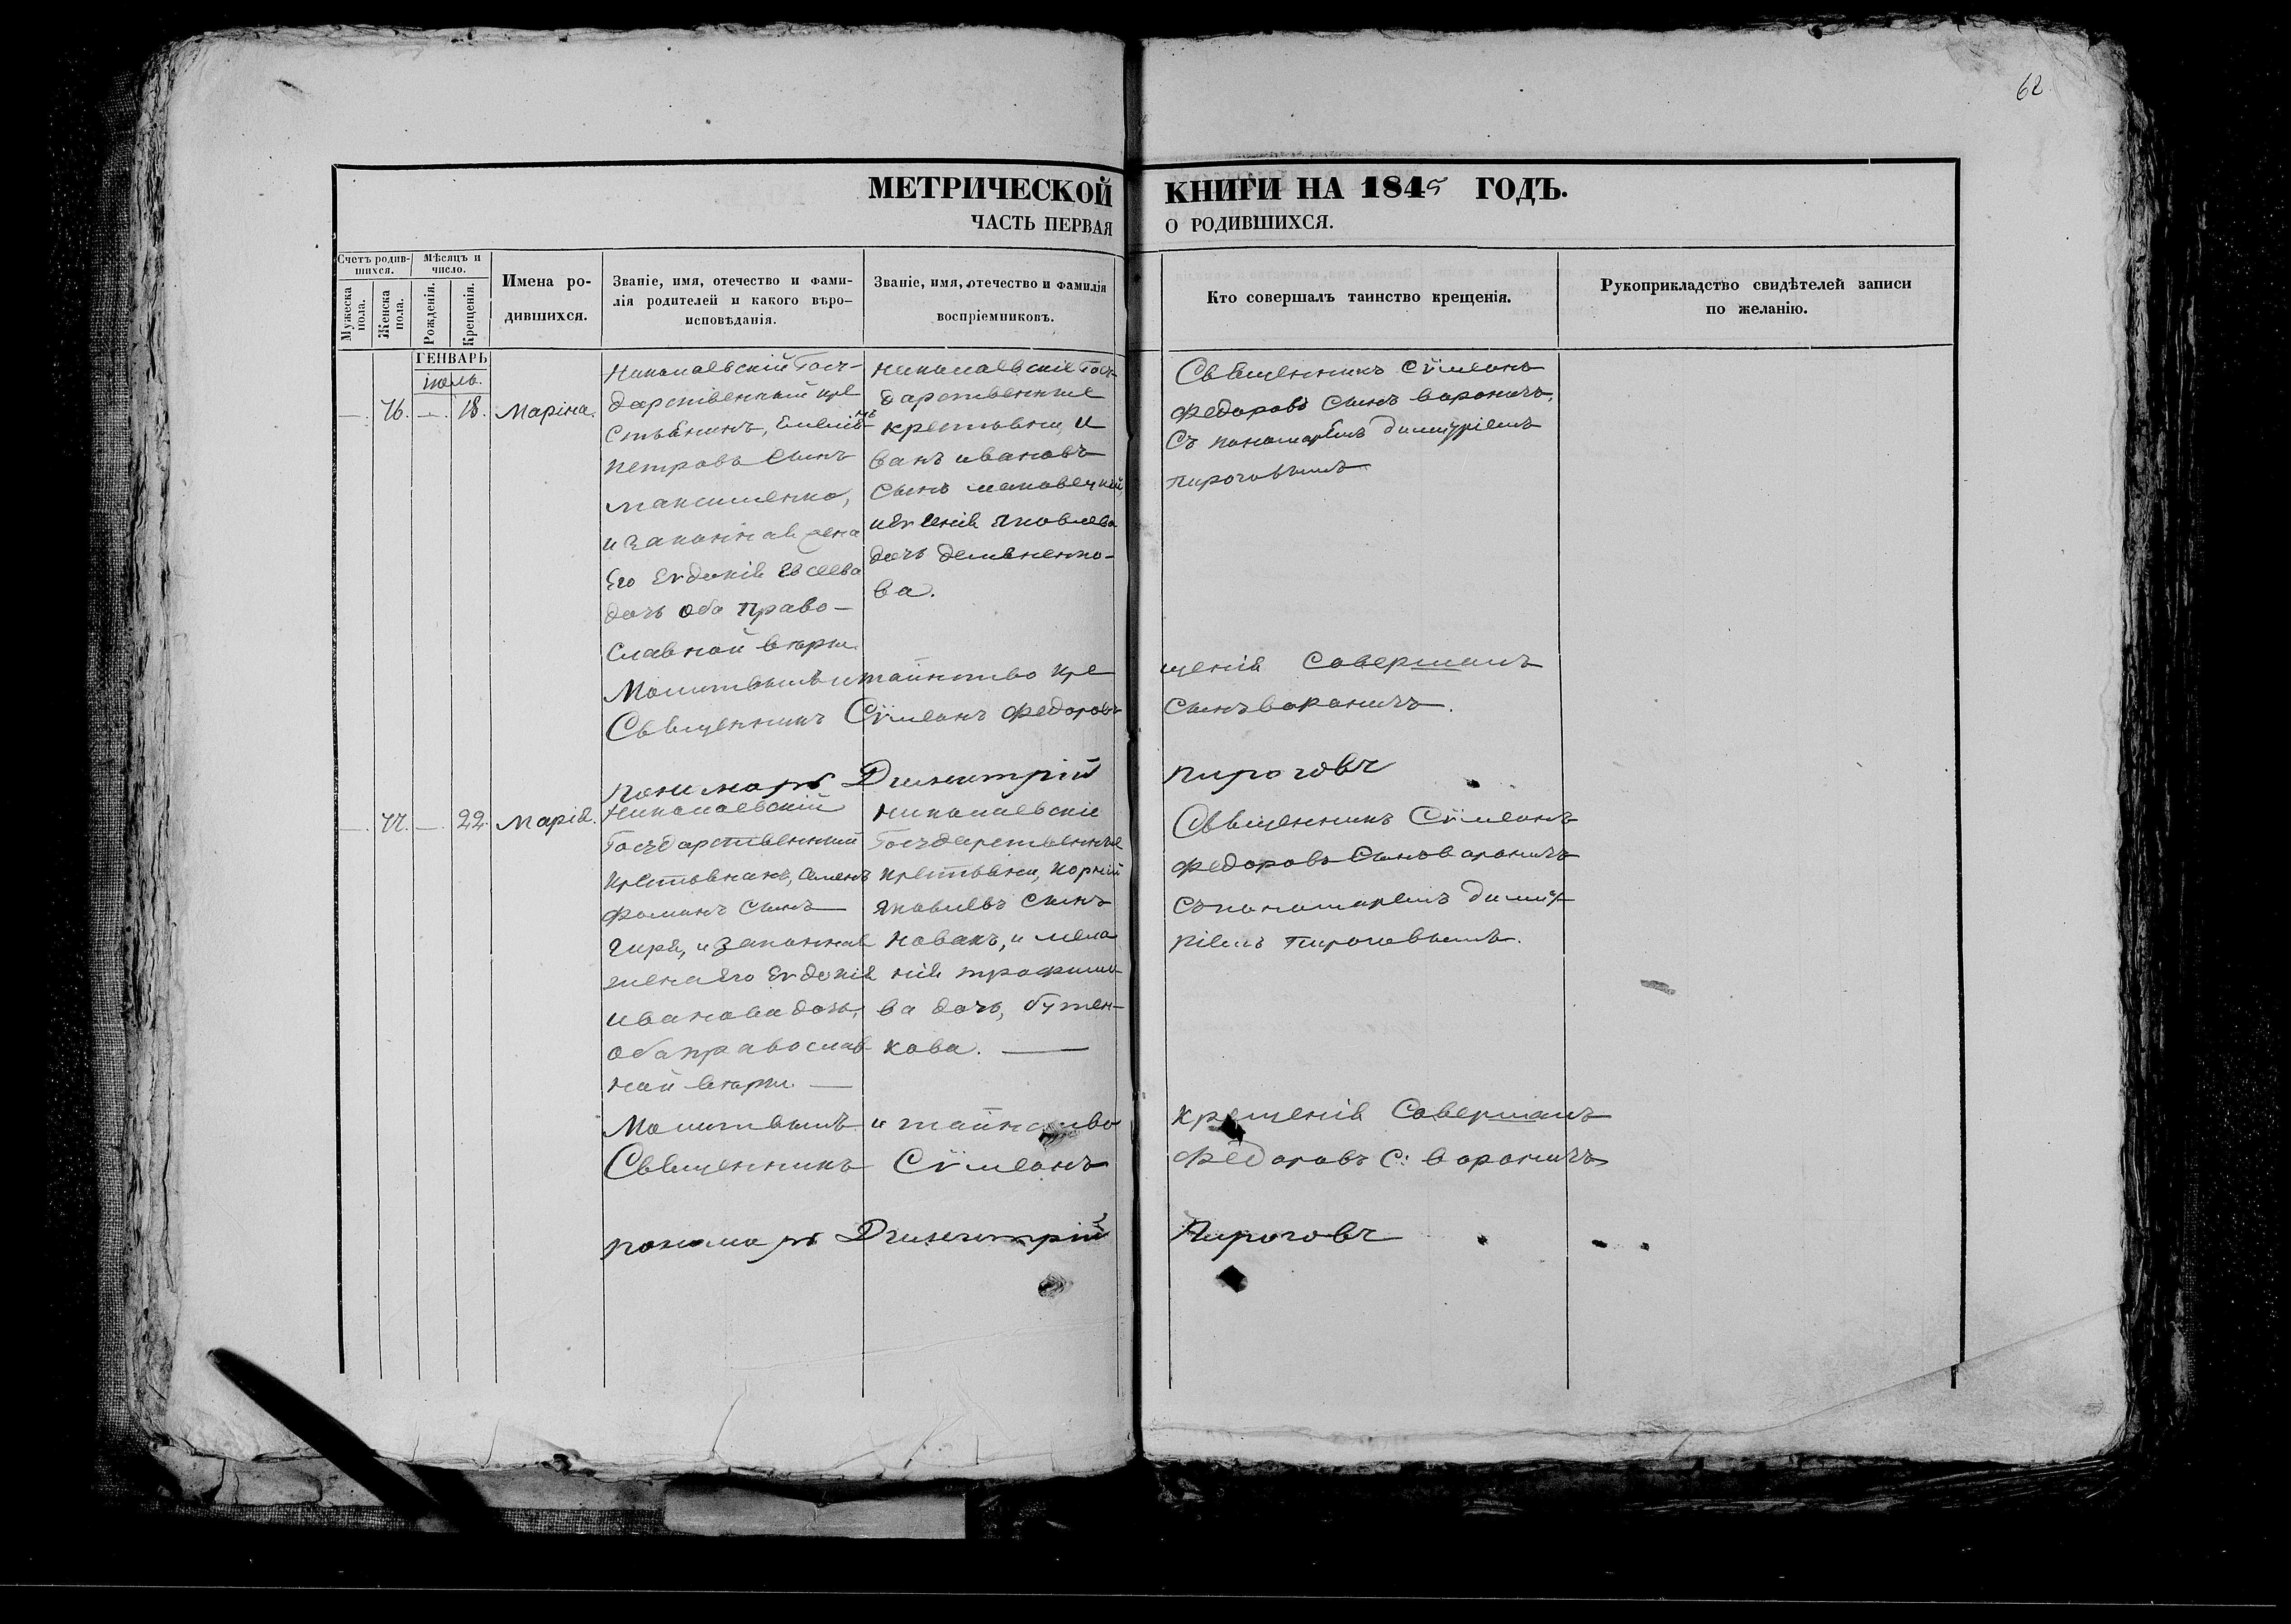 62
МЕТРИЧЕСКОЙ КНИГИ НА 1845 ГОДЪ.
ЧАСТЬ ПЕРВАЯ О РОДИВШИХСЯ.
Счетъ родив-
шихся.
Мужеска
пола.
Женска
пола.
Мѣсяцъ и
число.
Рожденія.
Крещенія.
Имена ро-
дившихся.
Званіе, имя, отечество и фами-
лія родителей и какого вѣро-
исповѣданія.
Званіе, имя, отечество и фамилія
воспріемниковъ.
Кто совершалъ таинство крещенія.
Рукоприкладство свидѣтелей записи
по желанію.
ГЕНВАРЬ
іюль.
—. 76. —. 18. Марина.
Николаевскій Госу-
дарственный кре
стьянинъ,
Петровъ сынъ
Максименко,
и законная жена
Его Евдокія Евсеева
дочь оба право-
славной вѣры
Николаевскіе Госу-
дарственные
крестьяни, И
ванъ ивановъ
сынъ
Яковлева
дочь
ва.
Священникъ Сѵмеонъ
Федоровъ сынъ Вороничъ,
Съ пономаремъ Димитріемъ
Пироговымъ
Молитвымъ и таинство кре щенія Совершалъ
Священникъ Сѵмеонъ Федоровъ сынъ Вороничъ.
пономарь Димитрій Пироговъ
—. 77. —. 22. Марія.
Николаевскій
Государственный
крестьянинъ, Семенъ
Фоминъ сынъ
Гиря, и законная
жена его Евдокія
Иванова дочь,
оба православ-
ной вѣры —
Николаевскіе
Государственные
крестьяни, Корній
Яковлевъ сынъ
Новакъ, и Мела
нія Трофимо-
ва дочь, Бутен-
кова. —
Священникъ Сѵмеонъ
Федоровъ Сынъ Вороничъ
съ пономаремъ Димит
ріемъ Пироговымъ.
Молитвымъ и таинство крещенія Совершалъ
Священникъ Сѵмеонъ Федоровъ С: Вороничъ
пономарь Димитрій Пироговъ